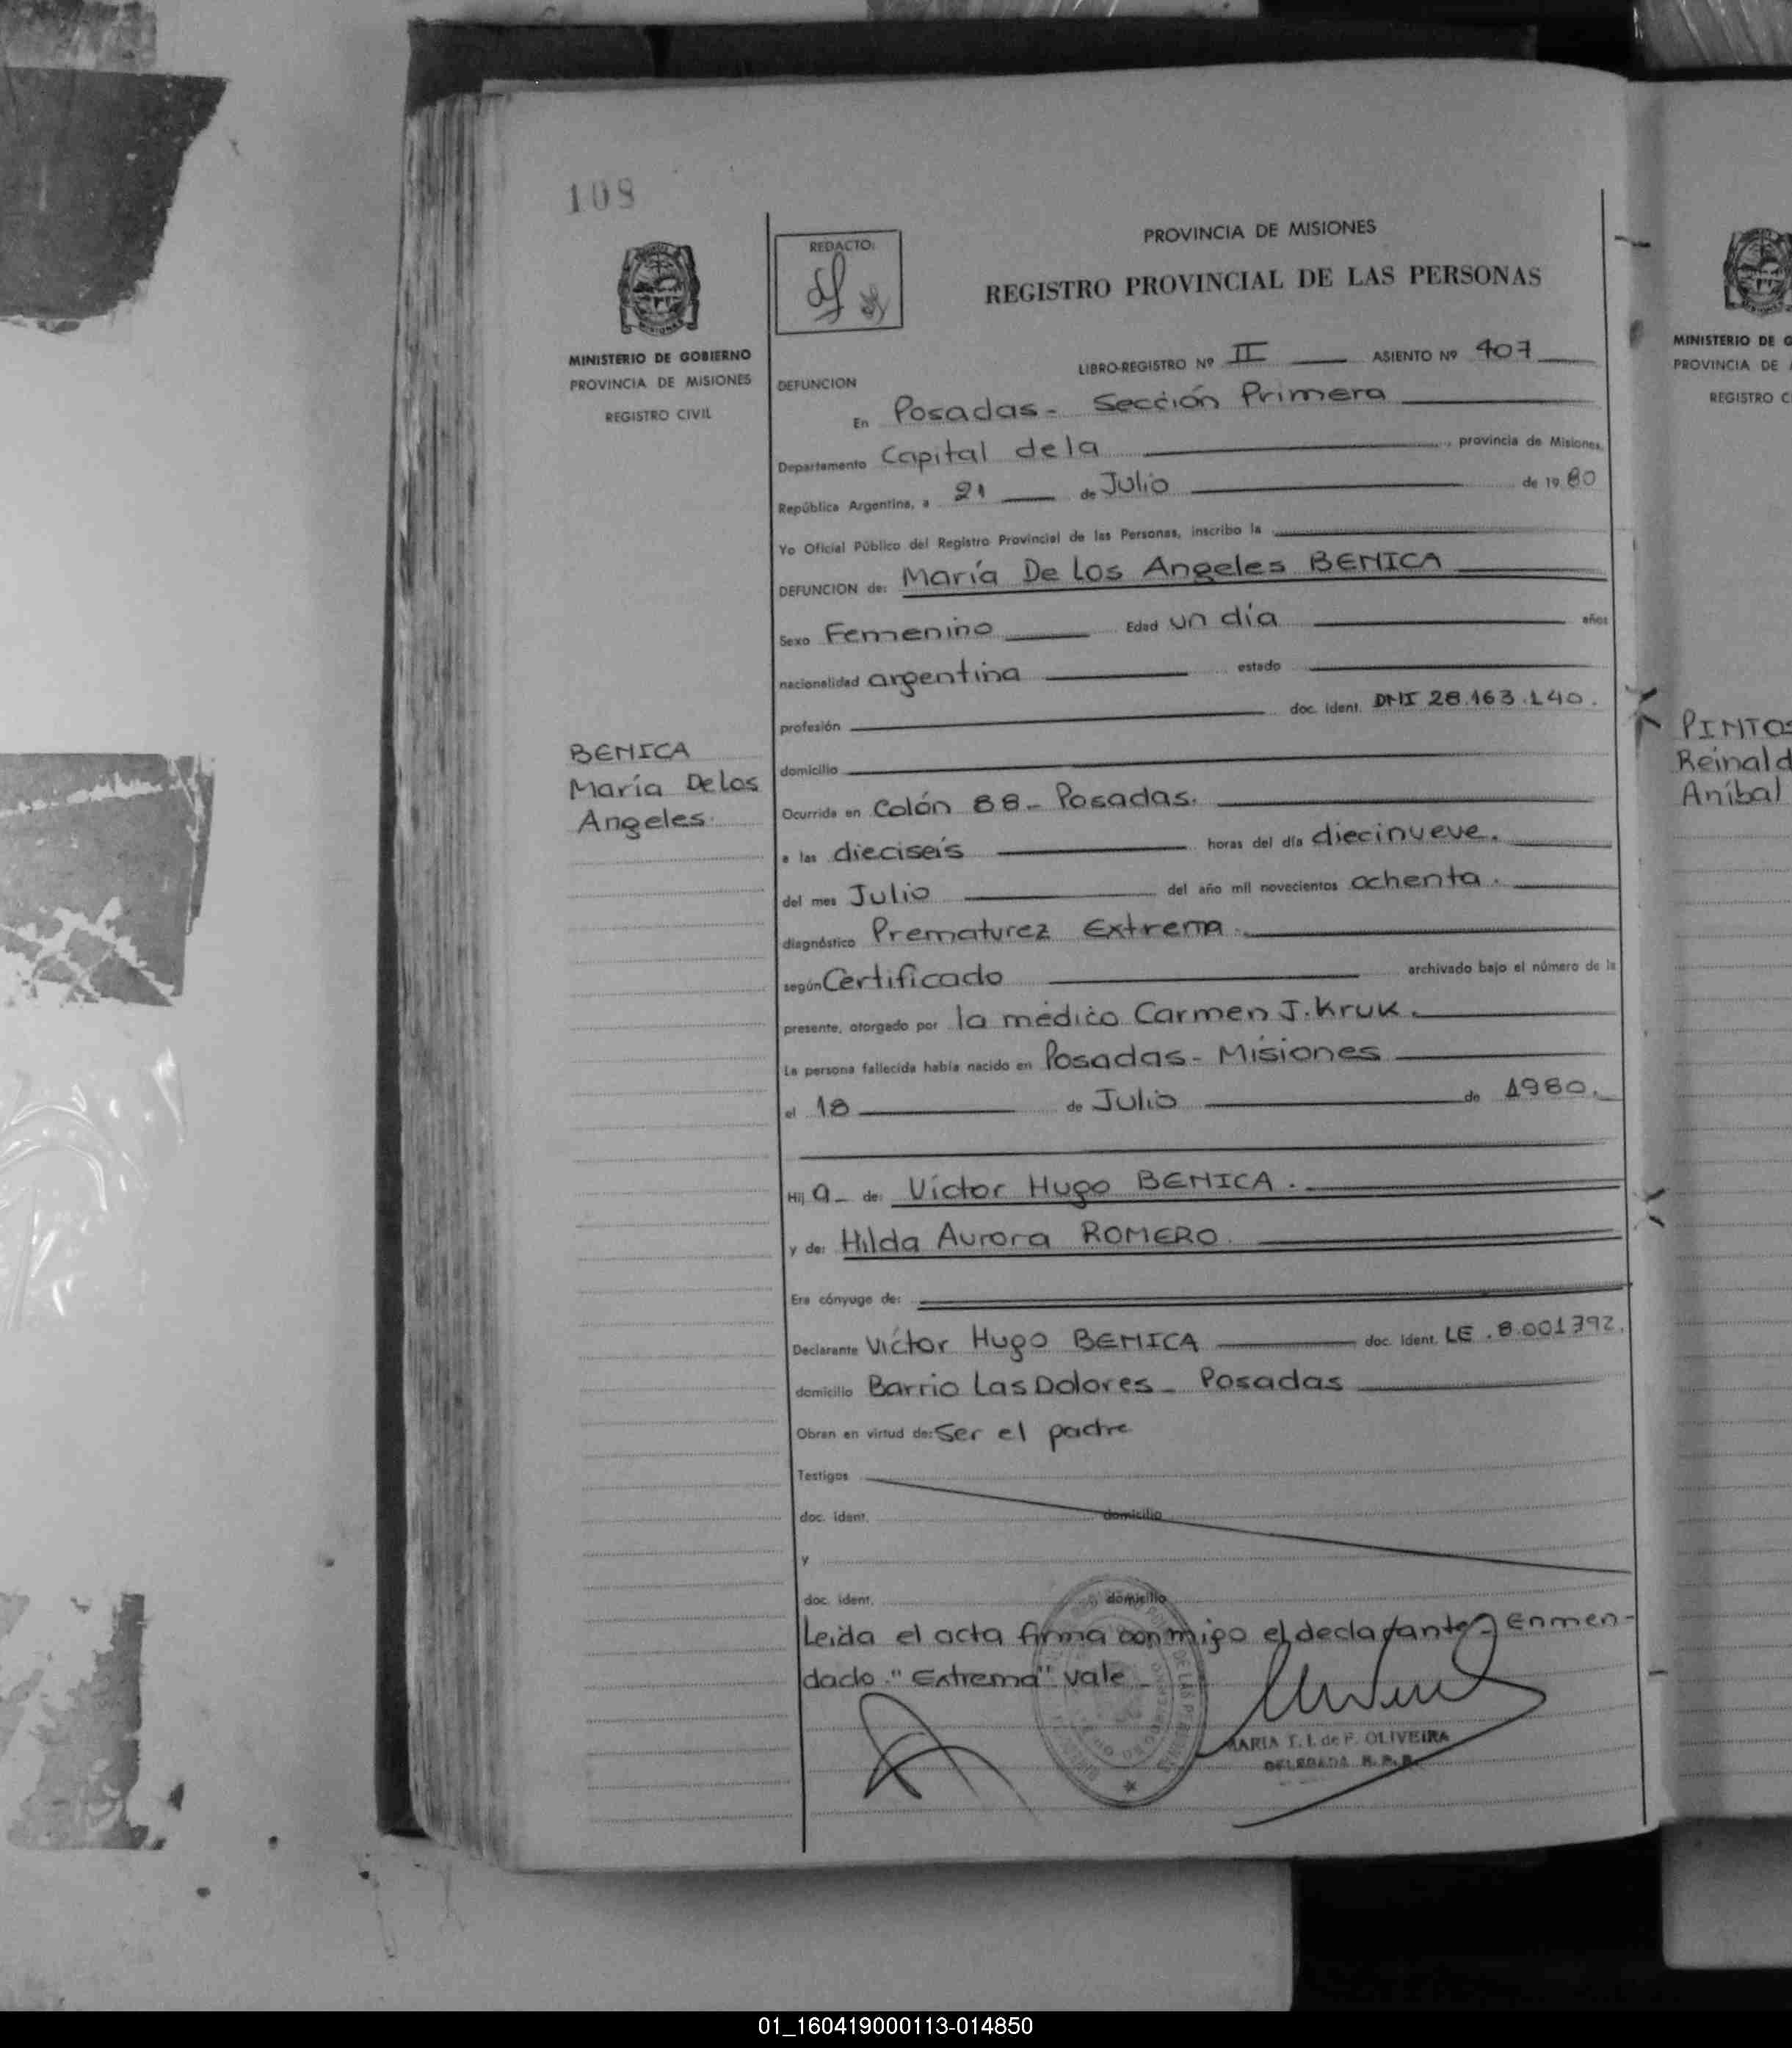 108
MINISTERIO DE GOBIERNO
PROVINCIA DE MISIONES
REGISTRO CIVIL
BENICA
María De los
Angeles.
REDACTO:
PROVINCIA DE MISIONES
REGISTRO PROVINCIAL DE LAS PERSONAS
LIBRO-REGISTRO Nº II ASIENTO Nº 407
DEFUNCION
En Posadas - Sección Primera
Departamento Capital de la , provincia de Misiones,
República Argentina, a 21 de Julio de 1980
Yo Oficial Público del Registro Provincial de las Personas, inscribo la
DEFUNCION de: María De Los Angeles BENICA
Sexo Femenino Edad un día años
nacionalidad argentina estado
profesión doc. ident. DNI 28.163.140.
domicilio
Ocurrida en Colón 88 - Posadas.
a las dieciseis horas del día diecinueve.
del mes Julio del año mil novecientos ochenta.
diagnóstico Prematurez Extrema.
según Certificado archivado bajo el número de la
presente, otorgado por la médico Carmen J. Kruk.
La persona fallecida había nacido en Posadas - Misiones
el 18 de Julio de 1980.
Hij a de: Víctor Hugo BENICA.
y de: Hilda Aurora ROMERO.
Era cónyuge de:
Declarante Víctor Hugo BENICA doc. ident. LE. 8.001792.
domicilio Barrio Las Dolores - Posadas
Obran en virtud de: Ser el padre
Testigos
doc. ident. domicilio
y
doc. ident. domicilio
Leida el acta firma conmigo el declarante - Enmen-
dado "Extrema" vale
DE LAS
OLIVEIRA
DELEGADA R. P. P.
MINISTERIO DE G
PROVINCIA DE
REGISTRO C
PINTOS
Reinald
Aníbal
01_160419000113-014850